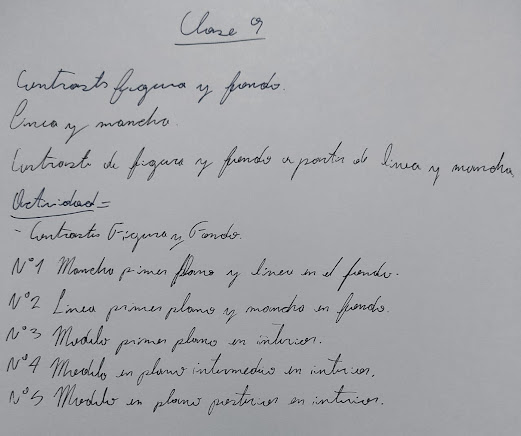 Clase 9
Contraste figura y fondo.
Linea y mancha.
Contraste de figura y fondo a partir de linea y mancha
Actividad =
- Contraste Figura y Fondo.
Nº1 Mancha primer plano y linea en el fondo.
Nº2 Linea primer plano y mancha en fondo.
Nº3 Modelo primer plano en interior.
Nº4 Modelo en plano intermedio en interior.
Nº5 Modelo en plano posterior en interior.